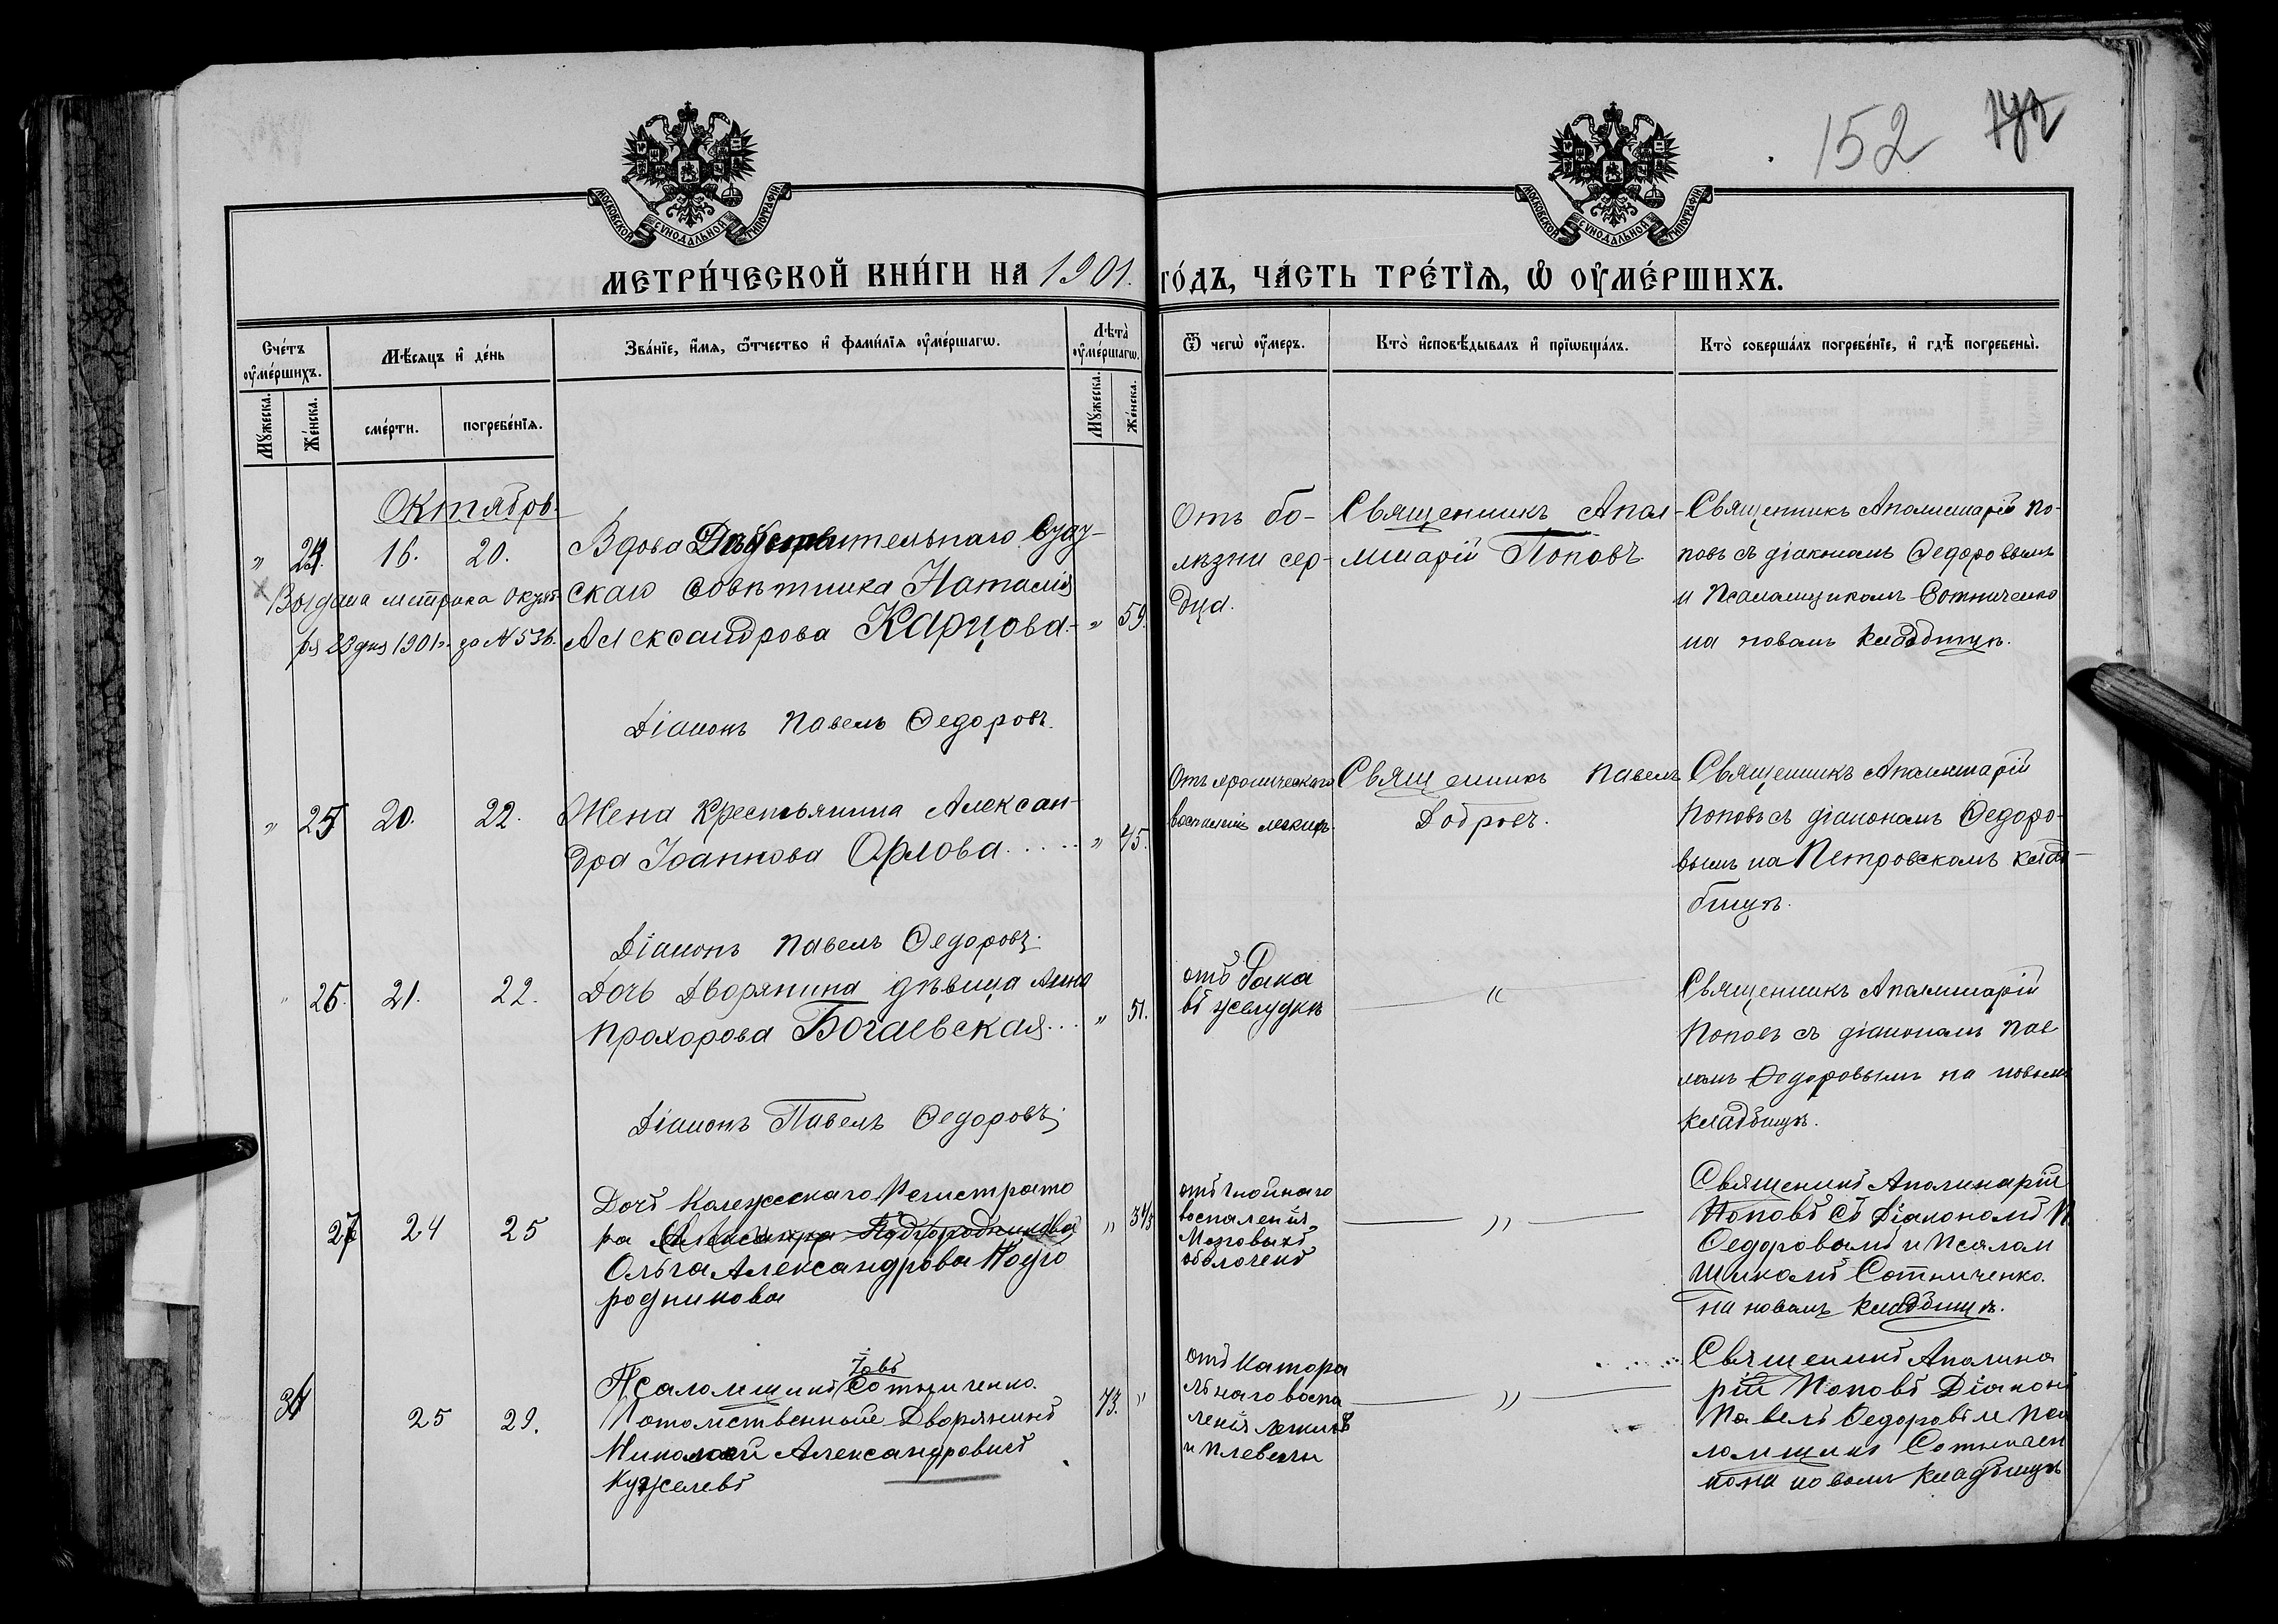 152
МОСКОВСКОЙ СѴНОДАЛЬНОЙ ТИПОГРАФІИ
МОСКОВСКОЙ СѴНОДАЛЬНОЙ ТИПОГРАФІИ
МЕТРИ́ЧЕСКОЙ КНИ́ГИ НА 1901. ГО́ДЪ, ЧА́СТЬ ТРЕ́ТЇѦ, Ѡ҆ ОУ҆МЕ́РШИХЪ.
Сче́тъ оу҆ме́ршихъ.
Мꙋ́жеска.
Же́нска.
Мѣ́сѧцъ и҆ де́нь
сме́рти.
погребе́нїѧ.
Зва́нїе, и҆́мѧ, ѻ҆́тчество и҆ фами́лїѧ оу҆ме́ршагѡ.
Лѣ́та̀ оу҆ме́ршагѡ.
Мꙋ́жеска.
Же́нска.
Ѿ чегѡ̀ оу҆́меръ.
Кто̀ и҆сповѣ́дывалъ и҆ прїѡбща́лъ.
Кто̀ соверша́лъ погребе́нїе, и҆ гдѣ̀ погребены̀.
Октябрь
" 24. 16. 20.
Выдана метрика октяб-
ря 20 дня 1901 г. за № 536.
Вдова Дѣйствительнаго Суду-
скаго Совѣтника Наталія
Александрова Карцова. - " 59.
Отъ бо-
лѣзни сер-
дца.
Священникъ Апол-
линарій Поповъ
Священникъ Аполлинарій По-
повъ съ діакономъ Ѳедоровымъ
и Псаломщикомъ Сотниченко
на новомъ кладбищѣ.
Діаконъ Павелъ Ѳедоровъ.
" 25 20. 22.
Жена Крестьянина Алексан-
дра Іоаннова Орлова..... " 45.
Отъ хроническаго
воспаленія легкихъ.
Священникъ Павелъ
Добровъ.
Священникъ Аполлинарій
Поповъ съ діакономъ Ѳедоро-
вымъ на Петровскомъ клад-
бищѣ.
Діаконъ Павелъ Ѳедоровъ.
" 26. 21. 22.
Дочь Дворянина дѣвица Анна
Прохорова Богаевская... " 51.
отъ Рака
въ желудкѣ
"
Священникъ Аполлинарій
Поповъ съ діакономъ Пав
ломъ Ѳедоровымъ на новомъ
кладбищѣ.
Діаконъ Павелъ Ѳедоровъ.
27 24 25
Дочь Колежскаго Регистрато
ра Александра Подгородникова
Ольга Александрова Подго
родникова
"
отъ гнойнаго
воспаленія
Мозговыхъ
оболочекъ
"
Священикъ Аполинарій
Поповъ съ Діакономъ П
Ѳедоровымъ и Псалом
щикомъ Сотниченко.
на новомъ кладбищѣ.
Псаломщикъ Іовъ Сотниченко.
25 29.
Потомственный Дворянинъ
Николай Александровичъ
Кужелевъ
73. "
отъ Катора
льнаго воспа
ленія легкихъ
и плевры
"
Священикъ Аполина
рій Поповъ Діаконъ
Павелъ Ѳедоровъ и Пса
ломщикъ Сотничен
ко на новомъ кладбищѣ